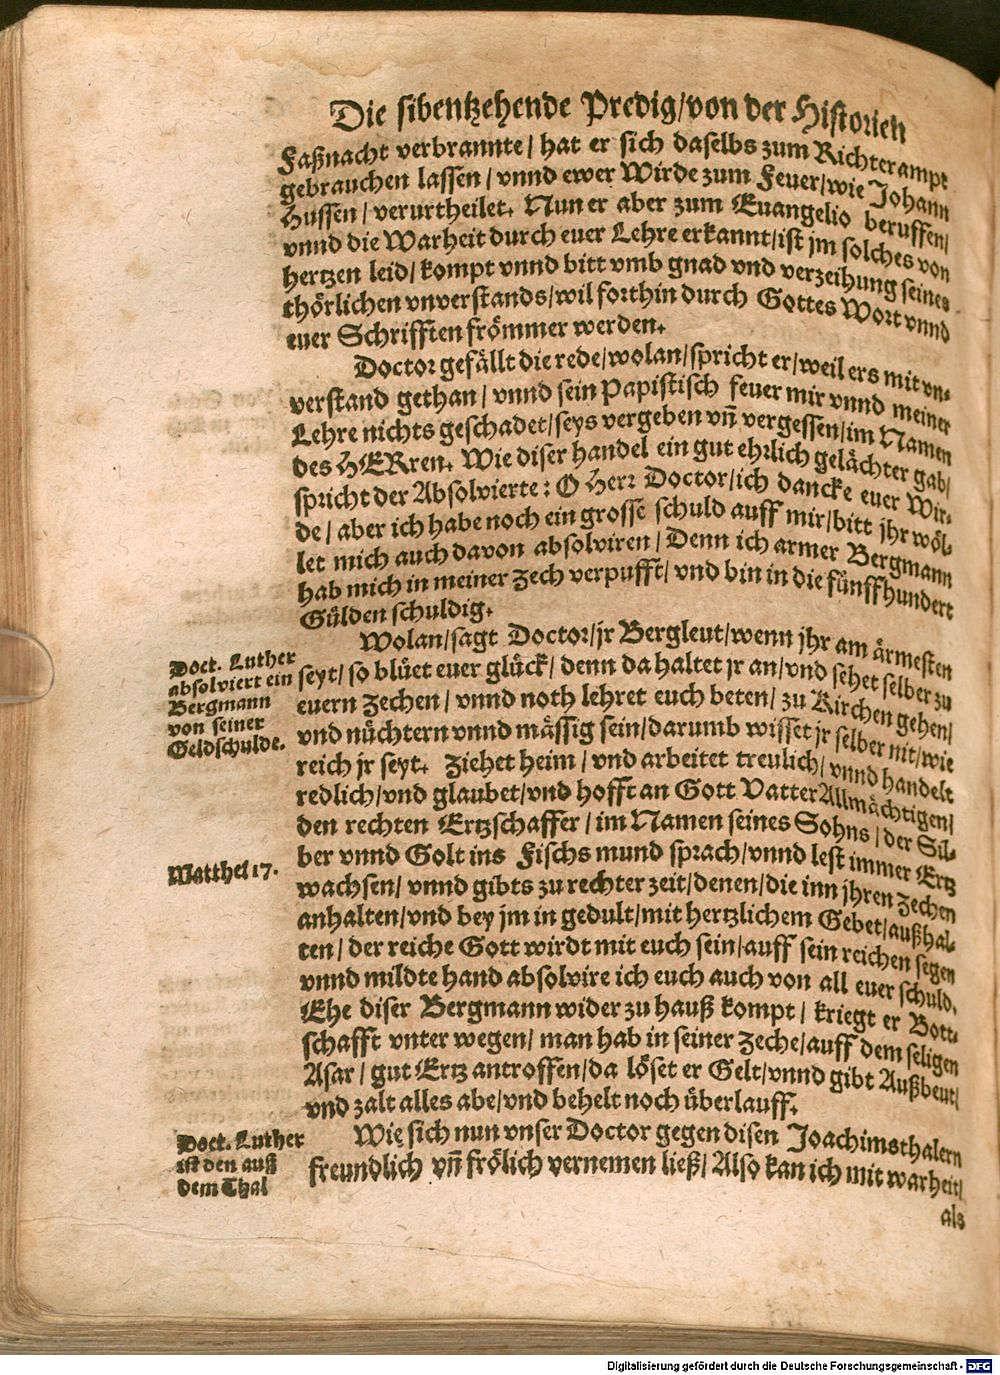 Die sibentzehende Predig/von der Historien
Faßnacht verbrannte/ hat er sich daselbs zum Richterampt
gebrauchen lassen/ vnnd ewer Wirde zum Feuer/wie Johann
Hussen/ verurtheilet. Nun er aber zum Euangelio beruffen/
vnnd die Warheit durch euer Lehre erkannt/ist jm solches von
hertzen leid/ kompt vnnd bitt vmb gnad vnd verzeihung seines
thörlichen vnverstands/wil forthin durch Gottes Wort vnnd
euer Schrifften frömmer werden.
Doctor gefällt die rede/wolan/spricht er/weil ers mit vn-
verstand gethan/ vnnd sein Papistisch feuer mir vnnd meiner
Lehre nichts geschadet/seys vergeben vñ vergessen/im Namen
des HERren. Wie diser handel ein gut ehrlich gelächter gab/
spricht der Absolvierte: O Herr Doctor/ich dancke euer Wir-
de/ aber ich habe noch ein grosse schuld auff mir/bitt jhr wöl-
let mich auch davon absolviren/ Denn ich armer Bergmann
hab mich in meiner Zech verpufft/ vnd bin in die fünffhundert
Gülden schuldig.
Wolan/sagt Doctor/jr Bergleut/wenn jhr am ärmesten
Doct. Luther
absolviert ein
Bergmann
von seiner
Geldschulde.
seyt/ so blüet euer glück/ denn da haltet jr an/vnd sehet selber zu
euern Zechen/ vnnd noth lehret euch beten/ zu Kirchen gehen/
vnd nüchtern vnnd mässig sein/darumb wisset jr selber nit/wie
reich jr seyt. Ziehet heim/ vnd arbeitet treulich/ vnnd handelt
redlich/vnd glaubet/vnd hofft an Gott Vatter Allmächtigen/
den rechten Ertzschaffer/ im Namen seines Sohns/ der Sil-
ber vnnd Golt ins Fischs mund sprach/vnnd lest immer Ertz
Matthei 17.
wachsen/ vnnd gibts zu rechter zeit/denen/die inn jhren Zechen
anhalten/vnd bey jm in gedult/mit hertzlichem Gebet/außhal-
ten/ der reiche Gott wirdt mit euch sein/auff sein reichen segen
vnnd mildte hand absolvire ich euch auch von all euer schuld.
Ehe diser Bergmann wider zu hauß kompt/ kriegt er Bott-
schafft vnter wegen/ man hab in seiner Zeche/auff dem seligen
Asar/ gut Ertz antroffen/da löset er Gelt/vnnd gibt Außbeut/
vnd zalt alles abe/vnd behelt noch überlauff.
Doct. Luther
ist den auß
dem Thal
Wie sich nun vnser Doctor gegen disen Joachimsthalern
freundlich vñ frölich vernemen ließ/ Also kan ich mit warheit/
als
Digitalisierung gefördert durch die Deutsche Forschungsgemeinschaft - DFG